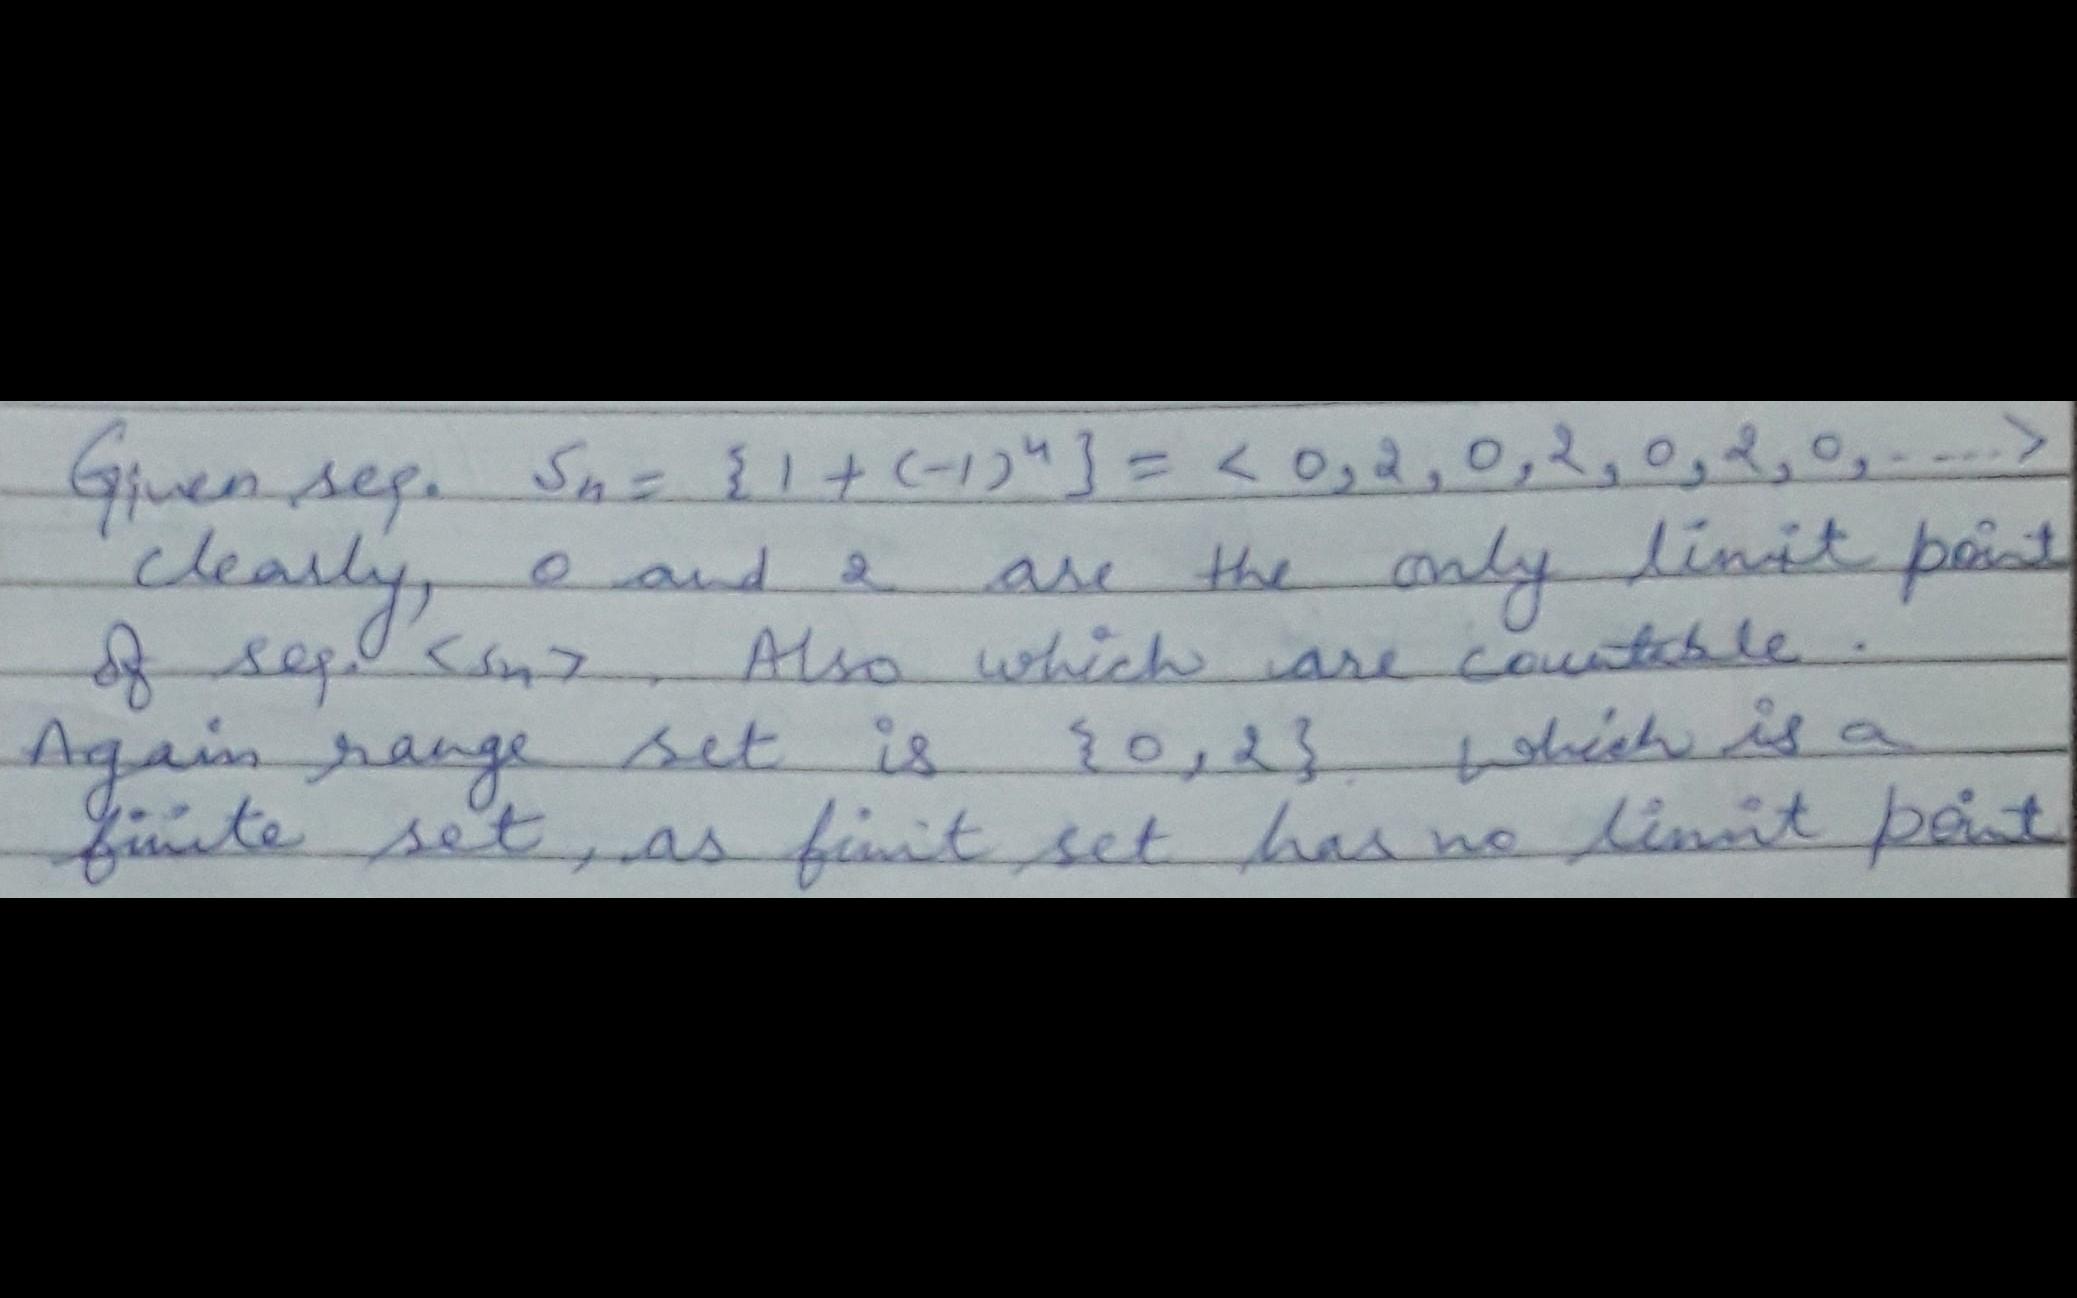 Given seq. Sn = {1 + (-1)ⁿ} = < 0, 2, 0, 2, 0, 2, 0, ..... >
clearly, 0 and 2 are the only limit point
of seq. <sn>. Also which are countable.
Again range set is {0, 2} which is a
finite set, as finit set has no limit point